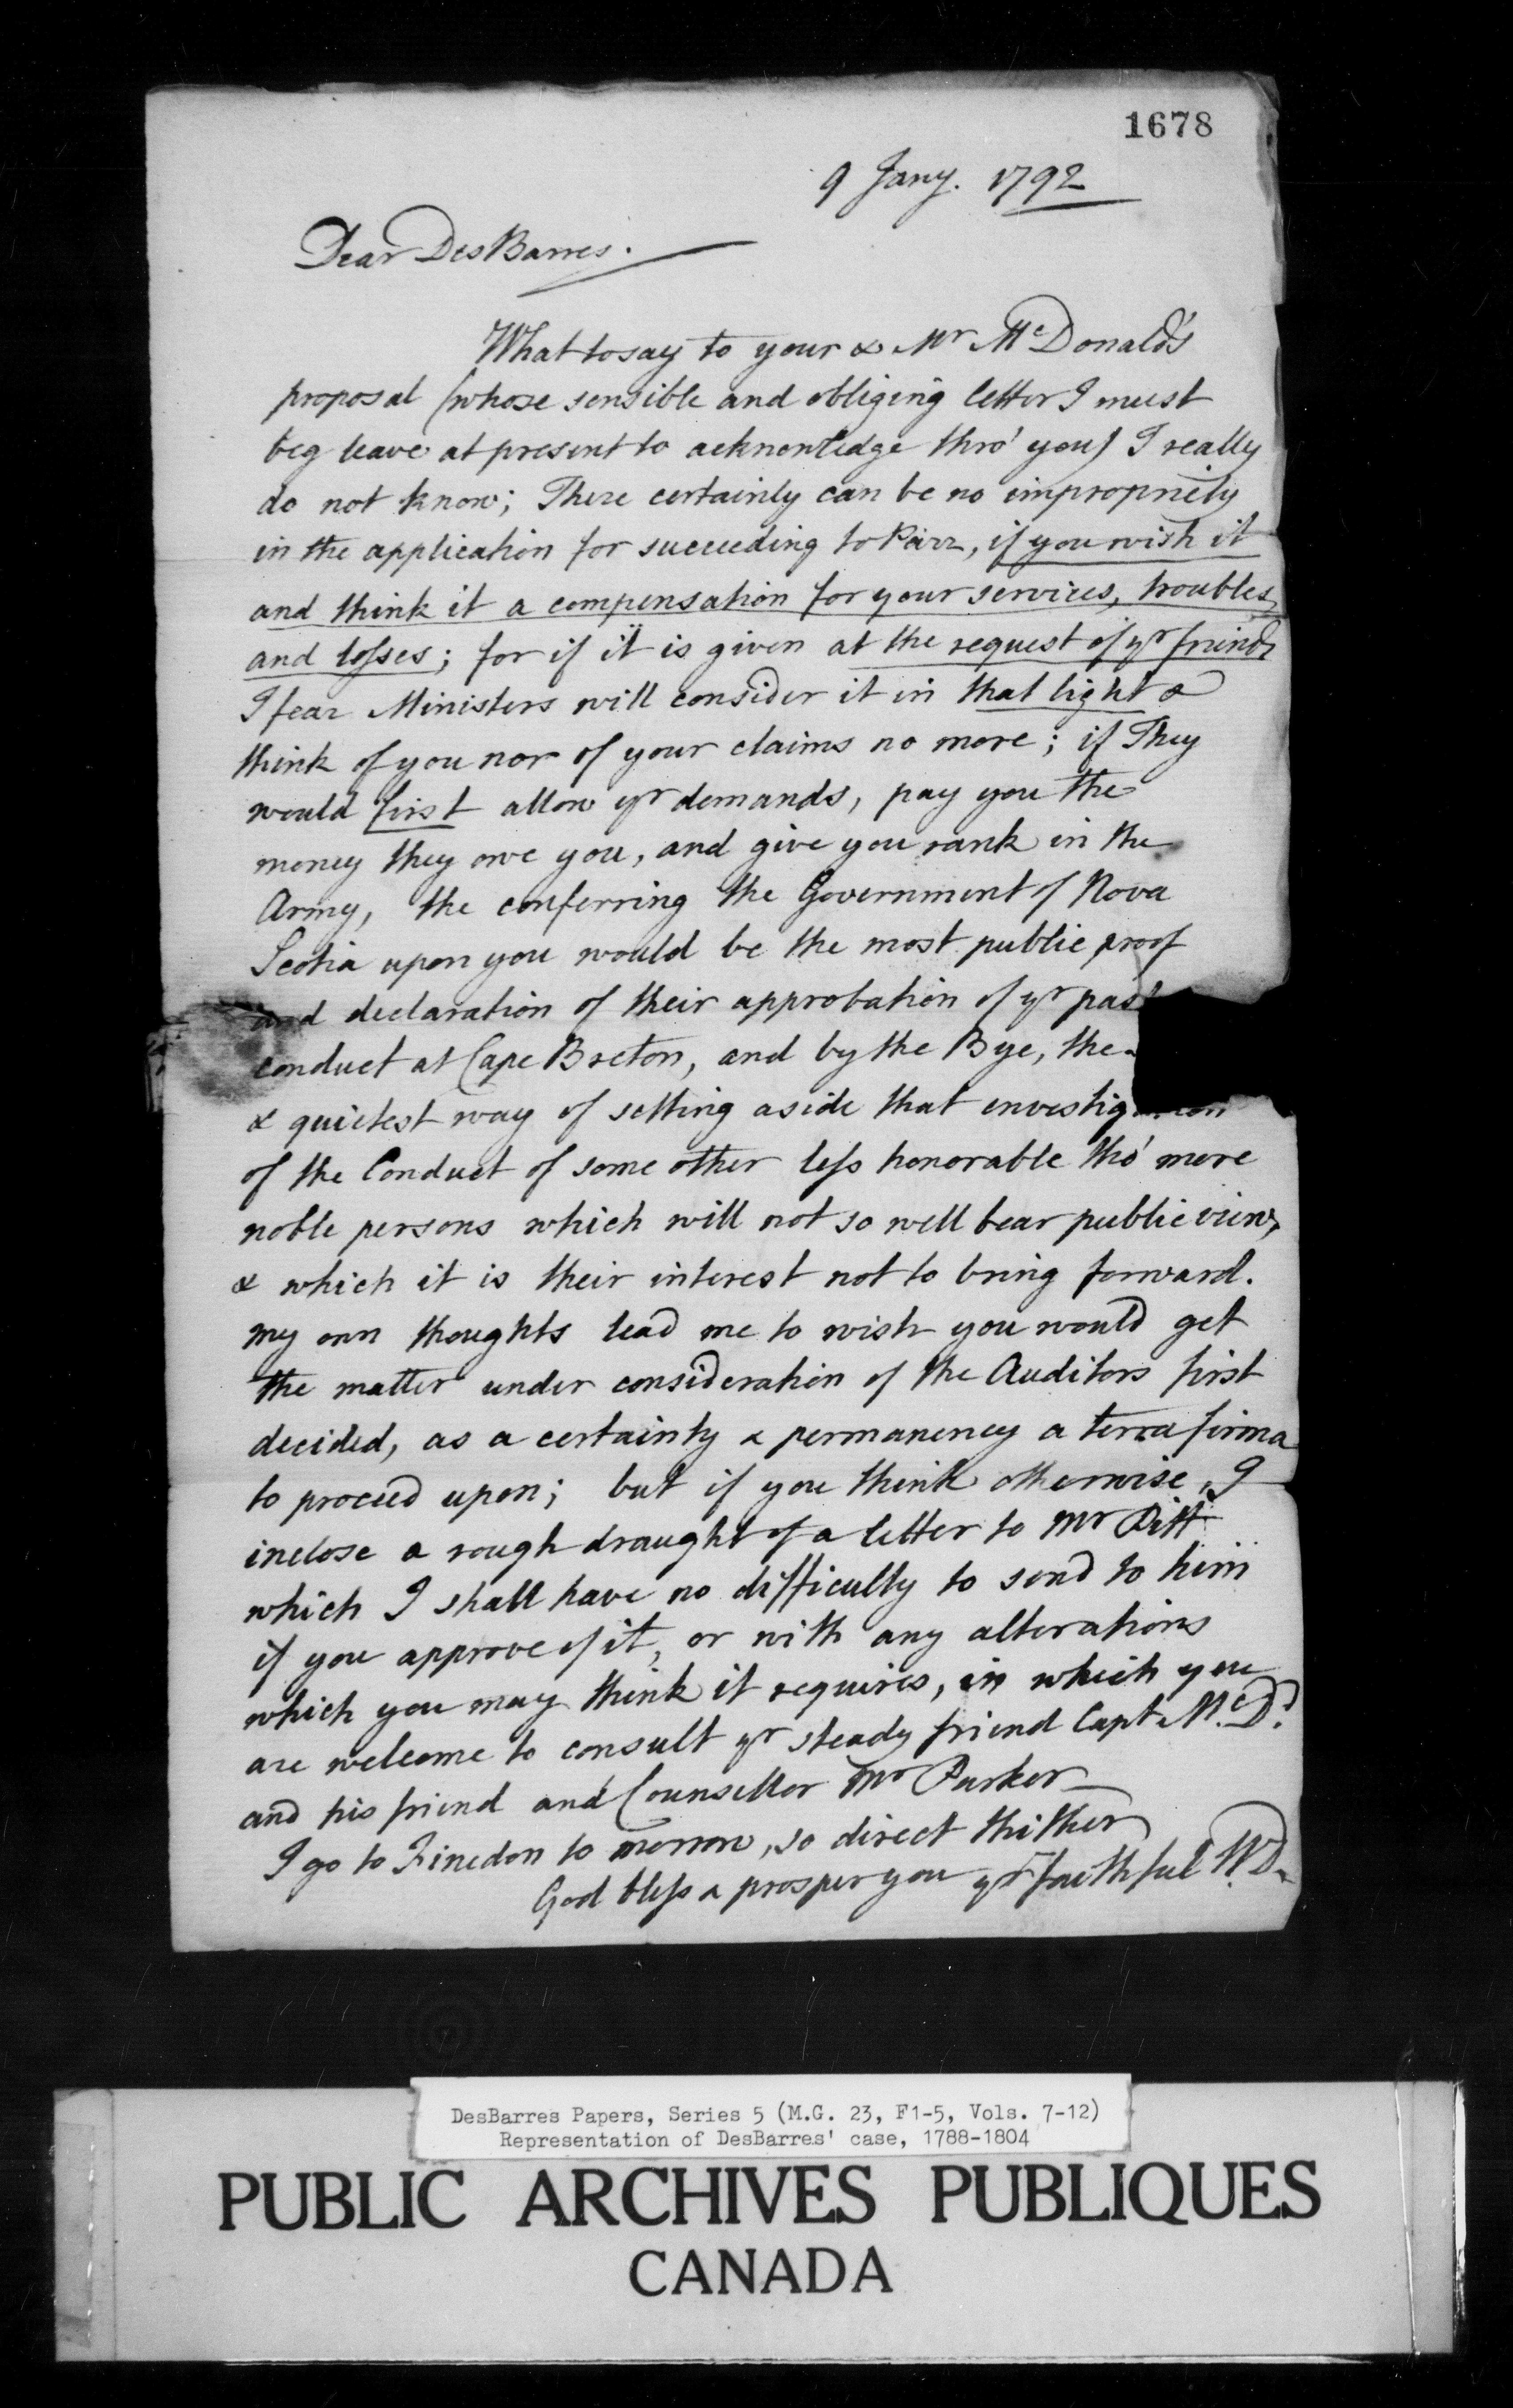 1678
9 Jany. 1792
Dear DesBarres.
What to say to your & Mr McDonald's
proposal (whose sensible and obliging letter I must
beg leave at present to acknowledge thro' you) I really
do not know; There certainly can be no impropriety
in the application for succeeding to Parr, if you wish it
and think it a compensation for your services, troubles,
and losses; for if it is given at the request of yr friends
I fear Ministers will consider it in that light &
think of you nor of your claims no more; if They
would first allow yr demands, pay you the
money they owe you, and give you rank in the
Army, the conferring the Government of Nova
Scotia upon you would be the most public proof
and declaration of their approbation of yr past
conduct at Cape Breton, and by the Bye, the
& quietest way of setting aside that investigation
of the Conduct of some other less honorable tho' more
noble persons which will not so well bear public view,
& which it is their interest not to bring forward.
my own thoughts lead me to wish you would get
the matter under consideration of the Auditors first
decided, as a certainty & permanency a terra firma
to proceed upon; but if you think otherwise, I
inclose a rough draught of a letter to Mr Pitt
which I shall have no difficulty to send to him
if you approve of it, or with any alterations
which you may think it requires, in which you
are welcome to consult yr steady friend Capt. McDd.
and his friend and Counsellor Mr Parker
I go to Finedon to morrow, so direct thither
God bless & prosper you yr faithful W.D.
DesBarres Papers, Series 5 (M.G. 23, F1-5, Vols. 7-12)
Representation of DesBarres' case, 1788-1804
PUBLIC ARCHIVES PUBLIQUES
CANADA